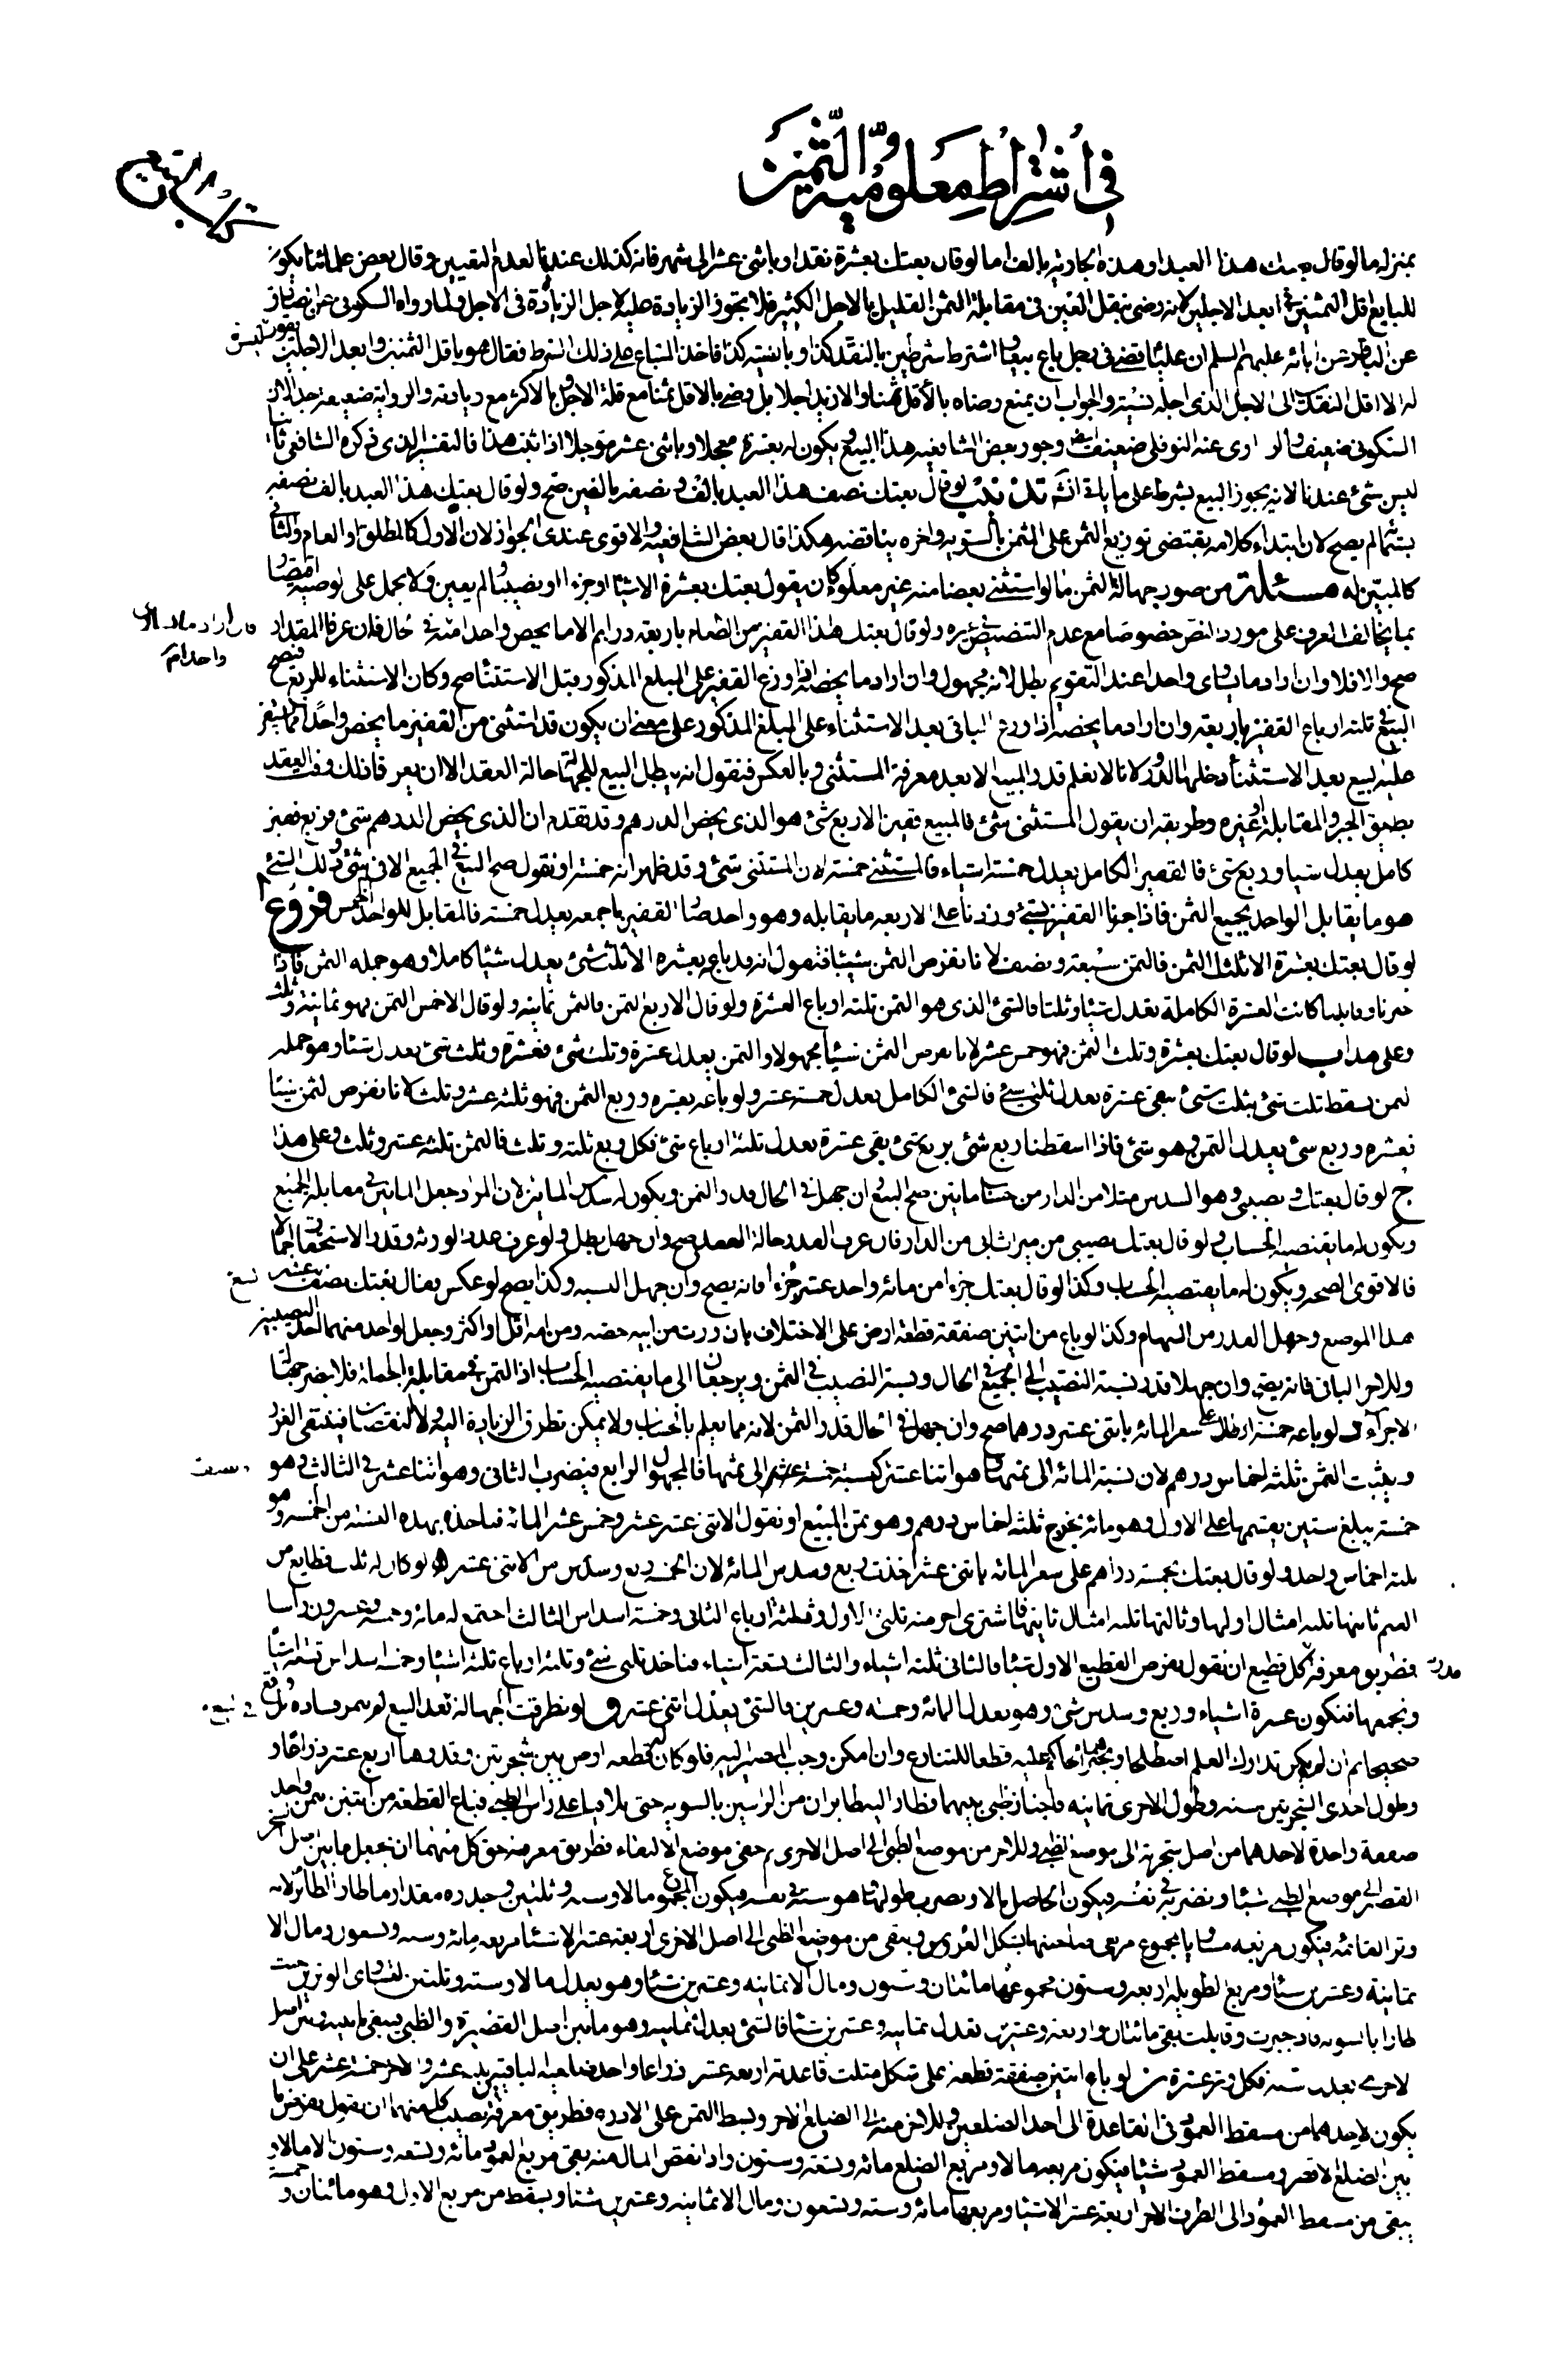 في اشتراط معلومية الثمن
كتاب البيع
بمنزلة ما لو قال بعتك هذا العبد او هذه الجارية بالف اما لو قال بعتك بعشرة نقدا وباثنى عشر الى شهر فانه كذلك عندنا لعدم التعيين وقال بعض علمائنا يكون
للبايع اقل الثمنين في ابعد الاجلين لانه رضى بنقل العين في مقابلة الثمن القليل بالاجل الكثير فلا يجوز الزيادة عليه لاجل الزيادة في الاجل ولما رواه السكوني عن الصادق
عن الباقر عن ابائه عليهم السلم ان عليا قضى في رجل باع بيعا واشترط شرطين بالنقد كذا وبالنسية كذا فاخذ المتاع على ذلك الشرط فقال هو باقل الثمنين وابعد الاجلين يقول ليس
له الا اقل النقدين الى الاجل الذى اجله نسية والجواب ان يمنع رضاه بالاقل ثمنا والازيد اجلا بل رضى بالاقل ثمنا مع قلة الاجل وبالاكثر مع زيادته والرواية ضعيفة جدا لان
السكوني ضعيف والراوى عنه النوفلى ضعيف ايضا وجوز بعض الشافعية هذا البيع ويكون له بعشرة معجلا وباثنى عشر مؤجلا اذا ثبت هذا فالتفسير الذى ذكره الشافعى ثانيا
ليس شئ عندنا لانه يجوز البيع بشرط على ما ياتى انشه تذنيب لو قال بعتك نصف هذا العبد بالف ونصفه بالفين صح ولو قال بعتك هذا العبد بالف نصفه
بستمائة لم يصح لان ابتداء كلامه يقتضى توزيع الثمن على المثمن بالسوية واخره يناقضه هكذا قال بعض الشافعية والاقوى عندى الجواز لان الاول كالمطلق او العام والثانى
كالمبين له مسئلة من صور جهالة الثمن ما لو استثنى بعضا منه غير معلوم كان يقول بعتك بعشرة الا شيئا او جزءا او نصيبا لم يعين ولا يحمل على الوصية اقتصارا
بما يخالف العرف على مورد النص خصوصا مع عدم التنصيص في غيره ولو قال بعتك هذا القفيز من الطعام باربعة دراهم الا ما يخص واحدا منه في الحال فان عرفا المقدار
صح والا فلا وان اراد ما يساوى واحدا عند التقويم بطل لانه مجهول وان اراد ما يخصه اذا وزع القفيز على المبلغ المذكور قبل الاستثناء صح وكان الاستثناء للربع فيصح
البيع في ثلثة ارباع القفيز باربعة وان اراد ما يخصه اذا وزع الباقى بعد الاستثناء على المبلغ المذكور على معنى ان يكون قد استثنى من القفيز ما يخص واحدا مما يستقر
عليه البيع بعد الاستثناء دخلها الدور لانا لا نعلم قدر المبيع الا بعد معرفة المستثنى وبالعكس فنقول انه يبطل البيع للجهالة حالة العقد الا ان يعرفا ذلك وقت العقد
بطريق الجبر والمقابلة او غيره وطريقه ان يقول المستثنى شئ فالمبيع قفيز الا ربع شئ هو الذى يخص الدرهم وقد تقدم ان الذى يخص الدرهم شئ فربع قفيز
كامل يعدل شيئا وربع شئ فالقفيز الكامل يعدل خمسة اشياء فالمستثنى خمسه لان المستثنى شئ وقد ظهر انه خمسه او نقول صح البيع في الجميع الا في شئ وذلك الشئ
هو ما يقابل الواحد بجميع الثمن فاذا جبرنا القفيز بشئ وزدنا على الاربعة ما يقابله وهو واحد صار القفيز باجمعه يعدل خمسة فالمقابل للواحد الخمس فروع ا
لو قال بعتك بعشرة الا ثلث الثمن فالثمن سبعة ونصف لانا نفرض الثمن شيئا فنقول انه قد باعه بعشرة الا ثلث شئ يعدل شيئا كاملا وهو جملة الثمن فاذا
جبرنا وقابلنا كانت العشرة الكاملة تعدل شيئا وثلثا فالشئ الذى هو الثمن ثلثة ارباع العشرة ولو قال الا ربع الثمن فالثمن ثمانية ولو قال الا خمس الثمن فهو ثمانية وثلث
وعلى هذا ب لو قال بعتك بعشرة وثلث الثمن فهو خمس عشر لانا نفرض الثمن شيئا مجهولا والثمن يعدل عشرة وثلث شئ فعشرة وثلث شئ يعدل شيئا وهو جملة
الثمن يسقط ثلث شئ بثلث شئ يبقى عشرة يعدل ثلثى شئ فالشئ الكامل يعدل خمسة عشر ولو باعه بعشرة وربع الثمن فهو ثلثة عشر وثلث لانا نفرض الثمن شيئا
فعشرة وربع شئ يعدل الثمن وهو شئ فاذا اسقطنا ربع شئ بربع شئ بقى عشرة يعدل ثلثة ارباع شئ فكل ربع ثلثة وثلث فالثمن ثلثة عشر وثلث وعلى هذا
ج لو قال بعتك نصيبى وهو السدس مثلا من الدار من حساب مايتين صح البيع وان جهل في الحال قدر الثمن ويكون له سدس المايتين لان المراد جعل المايتين في مقابلة الجميع
ويكون له ما يقتضيه الحساب ولو قال بعتك نصيبى من ميراث ابى من الدار فان عرف القدر حالة العقد صح وان جهل بطل ولو عرف عدد الورثة وقدر الاستحقاق اجمالا
فالاقوى الصحة ويكون له ما يقتضيه الحساب وكذا لو قال بعتك جزءا من مائة واحد عشر جزءا فانه يصح وان جهل النسبة وكذا يصح لو عكس فقال بعتك نصف تسع عشر
هذا الموضع وجهل القدر من السهام وكذا لو باع من اثنين صفقة قطعة ارض على الاختلاف بان ورث من ابيه حصة ومن امه اقل او اكثر وجعل لواحد منهما احد النصيبين
وللاخر الباقى فانه يصح وان جهلا قدر نسبة النصيب الى الجميع في الحال ونسبة النصيب في الثمن ويرجعان الى ما يقتضيه الحساب اذ الثمن في مقابلة الجملة فلا يضر جهالة
الاجزاء د لو باعه خمسة ارطال على سعر المائة باثنى عشر درهما صح وان جهل في الحال قدر الثمن لانه مما يعلم بالحساب ولا يمكن تطرق الزيادة اليه ولا النقصان فينتفى الغرر
ويثبت الثمن ثلثة اخماس درهم لان نسبة المائة الى ثمنها وهو اثنا عشر كنسبة خمسة الى ثمنها فالمجهول الرابع فيضرب الثانى وهو اثنا عشر في الثالث وهو
خمسة يبلغ ستين يقسمها على الاول وهو مائة يخرج ثلثة اخماس درهم وهو ثمن المبيع او نقول الاثنى عشر عشر وخمس عشر المائة فياخذ بهذه النسبة من الخمسة وهو
ثلثة اخماس واحد ولو قال بعتك بخمسة دراهم على سعر المائة باثنى عشر اخذت ربع وسدس المائة لان الخمسة ربع وسدس من الاثنى عشر ه لو كان له ثلث قطايع من
الغنم ثانيها ثلثة امثال اولها وثالثها ثلثة امثال ثانيها فاشترى اخر منه ثلثى الاول وثلثة ارباع الثانى وخمسة اسداس الثالث اجتمع له مائة وخمسة وعشرون راسا
فطريق معرفة كل قطيع ان نقول نفرض القطيع الاول شيئا فالثانى ثلثة اشياء والثالث تسعة اشياء فناخذ ثلثى شئ وثلثة ارباع ثلثة اشياء وخمسة اسداس تسعة اشياء
ونجمعها فتكون عشرة اشياء وربع وسدس شئ وهو يعدل المائة وخمسة وعشرين فالشئ يعدل اثنى عشر و لو تطرقت الجهالة بعد البيع لم يثمر فساده بل وقع
صحيحا ثم ان لم يمكن تدارك العلم اصطلحا او يجبرهما الحاكم عليه قطعا للتنازع وان امكن وجب المصير اليه فلو كان له قطعة ارض بين شجرتين وقدرها اربع عشر ذراعا
وطول احدى الشجرتين ستة وطول الاخرى ثمانية فاجتاز ظبى بينهما فطار اليه طايران من الراسين بالسوية حتى تلاقيا على راس الظبى فباع القطعة من اثنين بثمن واحد
صفقة واحدة لاحدهما من اصل شجرته الى موضع الظبى وللاخر من موضع الظبى الى اصل الاخرى ثم خفى موضع الالتقاء فطريق معرفة حق كل منهما ان نجعل ما بين اصل الشجر
القصيرة الى موضع الظبى شيئا ونضربه في نفسه فيكون الحاصل مالا ونضرب طولها وهو ستة في نفسه فيكون المجموع مالا وستة وثلثين وجذره مقدار ما طار الطائر لانه
وتر القائمة فيكون مربعه مساويا لمجموع مربعى ضلعيها بشكل العروس ويبقى من موضع الظبى الى اصل الاخرى اربعة عشر الا شيئا مربعه مائة وستة وتسعون ومال الا
ثمانية وعشرين شيئا ومربع الطويلة اربعة وستون مجموعهما مائتان وستون ومال الا ثمانية وعشرين شيئا وهو يعدل مالا وستة وثلثين لتساوى الوترين حيث
طارا بالسوية فاذا جبرت وقابلت بقى مائتان واربعة وعشرين تعدل ثمانية وعشرين شيئا فالشئ يعدل ثمانية وهو ما بين اصل القصيرة والظبى ويبقى ما بينه وبين اصل
الاخرى يعدل ستة فكل وتر عشرة ز لو باع اثنين صفقة قطعة على شكل مثلث قاعدته اربعة عشر ذراعا واحد ضلعيه الباقيين ثلثة عشر والاخر خمسة عشر على ان
يكون لاحدهما من مسقط العمود في القاعدة الى احد الضلعين وللاخر منه الى الضلع الاخر وبسط الثمن على الاذرع فطريق معرفة نصيب كل منهما ان نقول نفرض ما
بين الضلع الاقصر ومسقط العمود شيئا فيكون مربعه مالا ومربع الضلع مائة وتسعة وستون واذا نقص المال منه بقى مربع العمود مائة وتسعة وستون الا مالا و
يبقى من مسقط العمود الى الطرف الاخر اربعة عشر الا شيئا ومربعها مائة وستة وتسعون ومال الا ثمانية وعشرين شيئا ويسقط من مربع الاول وهو مائتان وخمسة